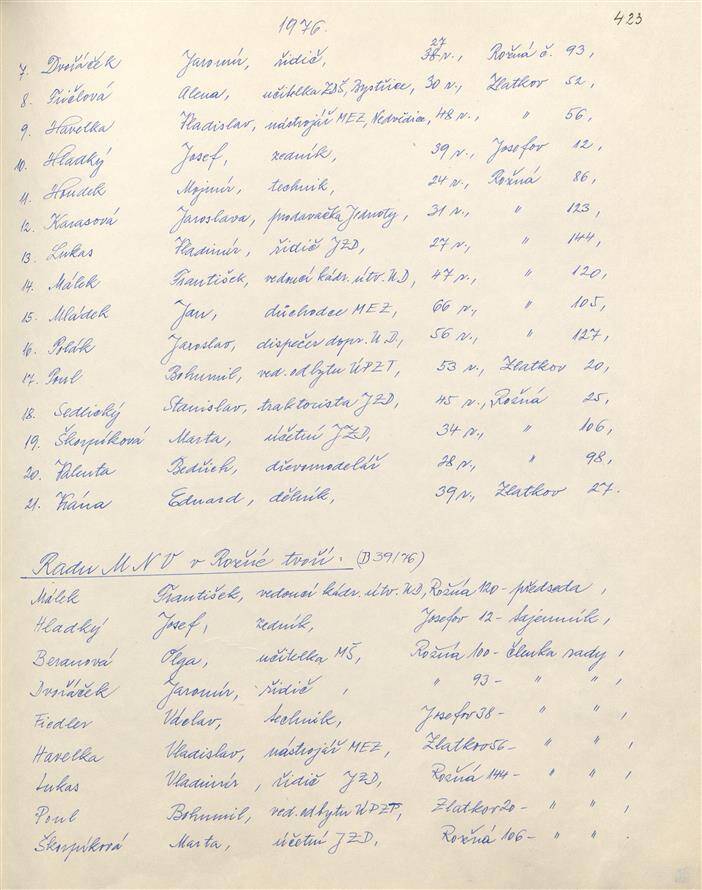 1976.
423
7. Dvořáček Jaromír, řidič, 27 r., Rožná č. 93,
8. Fričlová Alena, učitelka ZDŠ, Bystřice, 30 r., Zlatkov 52,
9. Havelka Vladislav, nástrojář MEZ, Nedvědice, 48 r., " 56,
10. Hladký Josef, zedník, 39 r., Josefov 12,
11. Houdek Mojmír, technik, 24 r., Rožná 86,
12. Karasová Jaroslava, prodavačka Jednoty, 31 r., " 123,
13. Lukas Vladimír, řidič JZD, 27 r., " 144,
14. Málek František, vedoucí kádr. útv. UD, 47 r., " 120,
15. Mládek Jan, důchodce MEZ, 66 r., " 105,
16. Polák Jaroslav, dispečer dopr. UD, 56 r., " 127,
17. Poul Bohumil, ved. odbytu ÚPZT, 53 r., Zlatkov 20,
18. Sedlický Stanislav, traktorista JZD, 45 r., Rožná 25,
19. Škorpíková Marta, účetní JZD, 34 r., " 106,
20. Valenta Bedřich, dřevomodelář 28 r., " 98,
21. Vrána Eduard, dělník, 39 r., Zlatkov 27.
Radu MNV v Rožné tvoří. (B 39/76)
Málek František, vedoucí kádr. útv. UD, Rožná 120 - předseda,
Hladký Josef, zedník, Josefov 12 - tajemník,
Beranová Olga, učitelka MŠ, Rožná 100 - členka rady,
Dvořáček Jaromír, řidič, " 93 - " ",
Fiedler Václav, technik, Josefov 38 - " ",
Havelka Vladislav, nástrojář MEZ, Zlatkov 56 - " ",
Lukas Vladimír, řidič JZD, Rožná 144 - " ",
Poul Bohumil, ved. odbytu ÚPZT, Zlatkov 20 - " ",
Škorpíková Marta, účetní JZD, Rožná 106 - " " .